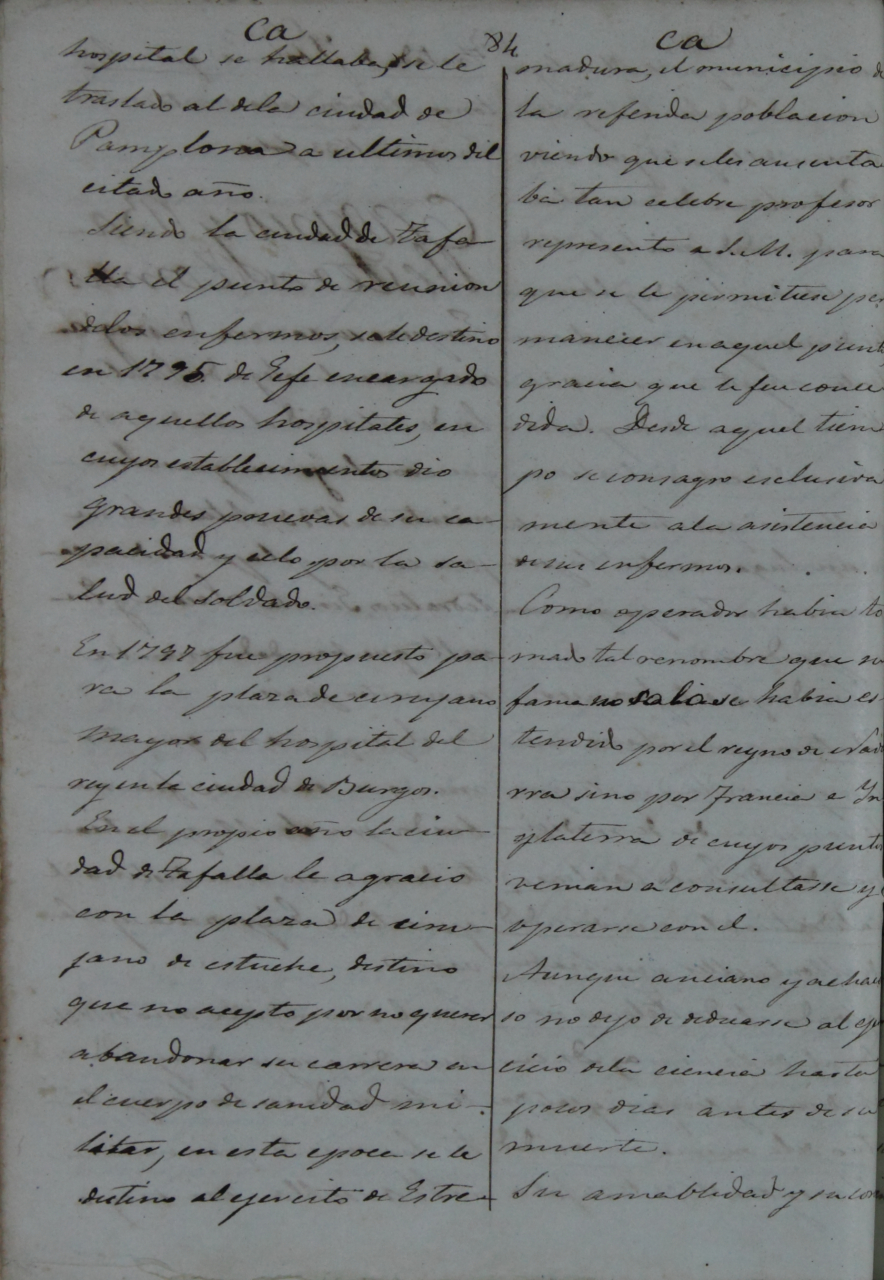 ca
84
ca
hospital se hallaba, se le
traslado al dela ciudad de
Pamplona a ultimos del
citado año.
Siendo la ciudad de Tafa-
lla el punto de reunion
delos enfermos, sele destino
en 1795. de Gefe encargado
de aquellos hospitales, en
cuyos establecimientos dio
grandes pruevas de su ca-
pacidad y celo por la sa-
lud del soldado.
En 1797 fue propuesto pa-
ra la plaza de cirujano
mayor del hospital del
rey en la ciudad de Burgos.
En el propio año la ciu-
dad de Tafalla le agracio
con la plaza de ciru-
jano de estuche, destino
que no acepto por no querer
abandonar su carrera en
el cuerpo de sanidad mi-
litar, en esta epoca se le
destino al ejercito de Estre-
madura, el municipio de
la referida poblacion
viendo que seles ausenta
ba tan celebre profesor
represento a S.M. para
que se le permitiese per
manecer en aquel punto,
gracia que le fue conce
dida. Desde aquel tiem
po se consagro esclusiva
mente ala asistencia
de sus enfermos.
Como operador habia to
mado tal renombre que su
fama no solo se habia es
tendido por el reyno de Nava
rra sino por Francia e In
glaterra de cuyos puntos
venian a consultarse y
operarse con el.
Aunque anciano y achaco
so no dejo de dedicarse al ejer
cicio dela ciencia hasta
pocos dias antes de su
muerte.
Su amablidad y su con